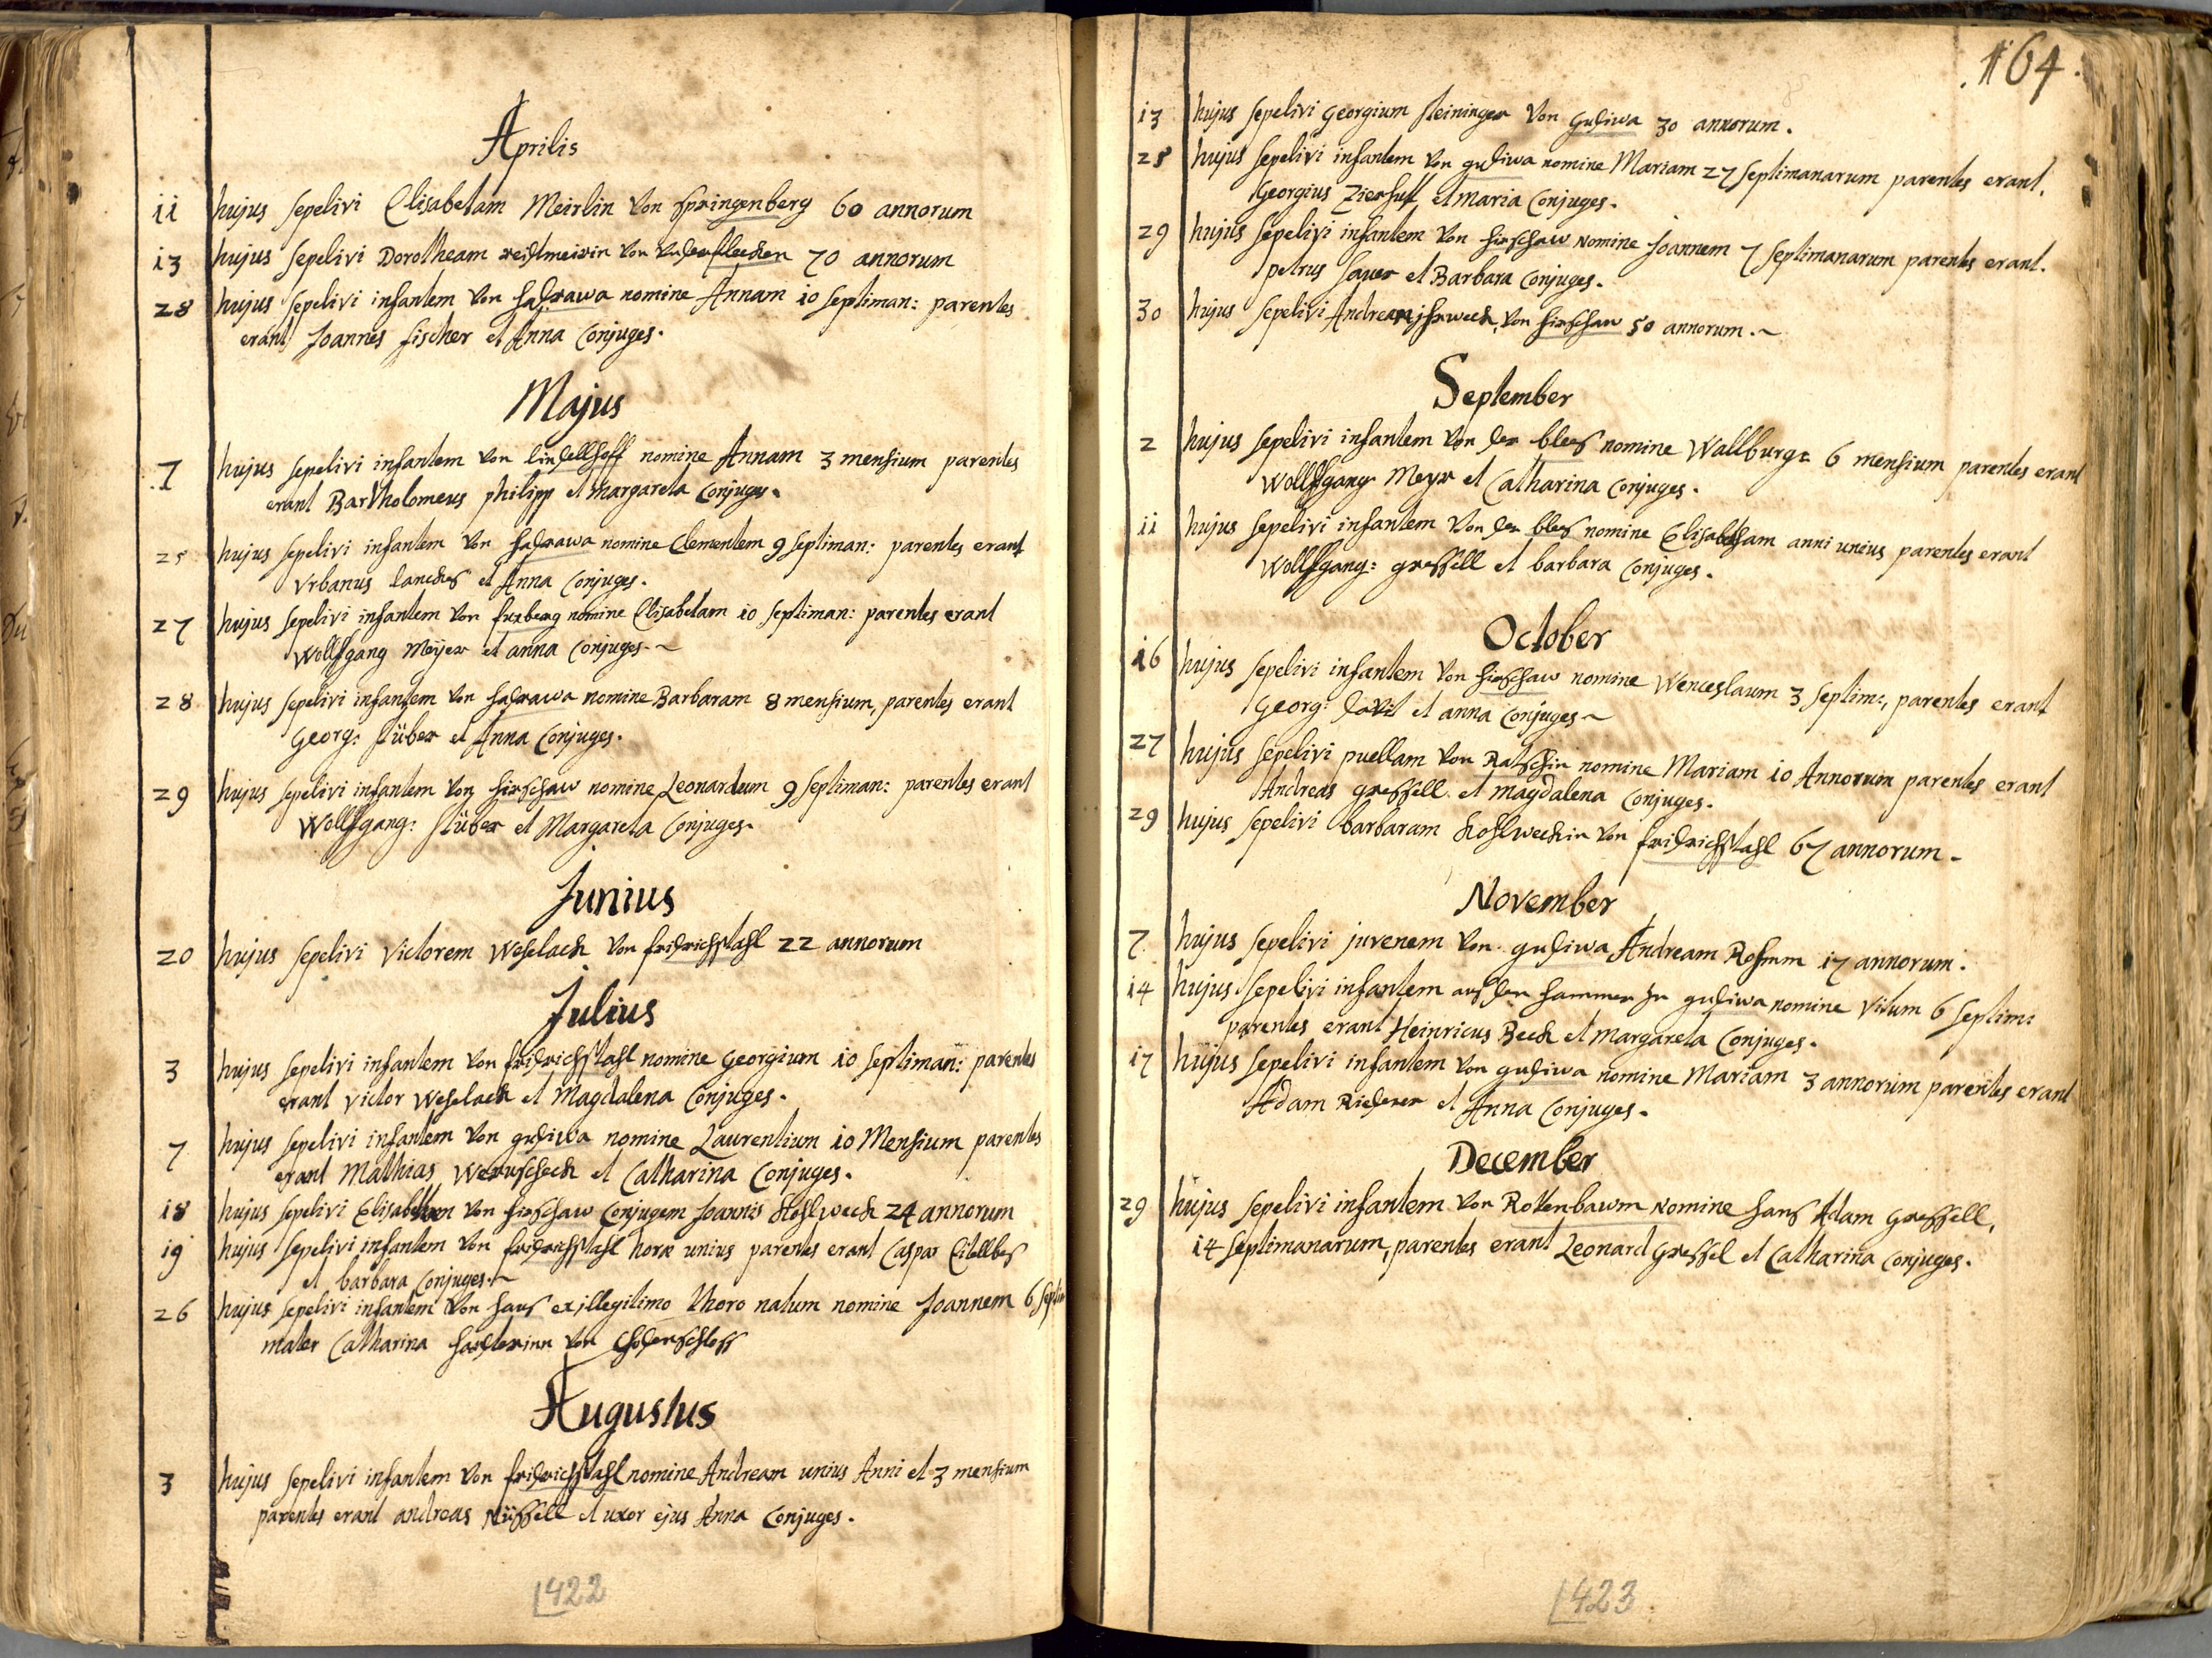 Aprilis
11 hujus sepelivi Elisabetam Meirlin von springenberg 60 annorum
13 hujus sepelivi Dorotheam reichmeirin von 70 annorum
28 hujus sepelivi infantem von hadrawa nomine Annam 10 septiman: parentes
erant Joannes fischer et Anna Conjuges.
Majus
7 hujus sepelivi infantem von nomine Annam 3 mensium parentes
erant Bartholomeus philipp et margareta Conjuges.
25 hujus sepelivi infantem von hadrawa nomine Clementem 9 septiman: parentes erant
Vrbanus et Anna Conjuges.
27 hujus sepelivi infantem von nomine Elisabetam 10 septiman: parentes erant
Wolfgang Meijer et anna Conjuges.
28 hujus sepelivi infantem von hadrawa nomine Barbaram 8 mensium, parentes erant
Georg: stüber et Anna Conjuges.
29 hujus sepelivi infantem von hirschaw nomine Leonardum 9 septiman: parentes erant
Wolfgang: stüber et Margareta Conjuges.
Junius
20 hujus sepelivi Victorem Weselack von fridrichstahl 22 annorum
Julius
3 hujus sepelivi infantem von fridrichstahl nomine Georgium 10 septiman: parentes
erant victor Weselack et Magdalena Conjuges.
7 hujus sepelivi infantem von gudiwa nomine Laurentium 10 Mensium parentes
erant Mathias et Catharina Conjuges.
18 hujus sepelivi Elisabetham von hirschaw Conjugem Joannis Kohlweck 24 annorum
19 hujus sepelivi infantem von fridrichstahl horæ unius parentes erant Caspar
et barbara Conjuges.
26 hujus sepelivi infantem von haus ex illegitimo thoro natum nomine Joannem 6 septim
mater Catharina von
Augustus
3 hujus sepelivi infantem von fridrichstahl nomine Andream unius Anni et 3 mensium
parentes erant andreas Nüssell et uxor ejus Anna Conjuges.
422
164.
13 hujus sepelivi Georgium steininger von gudiwa 30 annorum.
28 hujus sepelivi infantem von gudiwa nomine Mariam 27 septimanarum parentes erant.
Georgius Zierhutt et Maria Conjuges.
29 hujus sepelivi infantem von hirschaw nomine Joannem 7 septimanarum parentes erant.
petrus et Barbara Conjuges.
30 hujus sepelivi Andream von hirschaw 50 annorum.
September
2 hujus sepelivi infantem von der bles nomine Wallburg: 6 mensium parentes erant
Wolfgang Meyr et Catharina Conjuges.
11 hujus sepelivi infantem von der bles nomine Elisabetham anni unius parentes erant
Wolfgang: gressell et barbara Conjuges.
October
16 hujus sepelivi infantem von hirschaw nomine Wenceslaum 3 septim:, parentes erant
Georg: david et anna Conjuges
27 hujus sepelivi puellam von Ratschin nomine Mariam 10 Annorum parentes erant
Andreas gressell et magdalena Conjuges.
29 hujus sepelivi barbaram Kohlweckin von fridrichstahl 67 annorum.
November
7 hujus sepelivi juvenem von gudiwa Andream 17 annorum.
14 hujus sepelivi infantem auf den hammer zu gudiwa nomine Vitum 6 septim:
parentes erant Heinricus Beck et margareta Conjuges.
17 hujus sepelivi infantem von gudiwa nomine Mariam 3 annorum parentes erant
Adam Riederer et Anna Conjuges.
December
29 hujus sepelivi infantem von Rottenbawm nomine hans Adam gressell,
14 septimanarum, parentes erant Leonard Gressel et Catharina Conjuges.
423